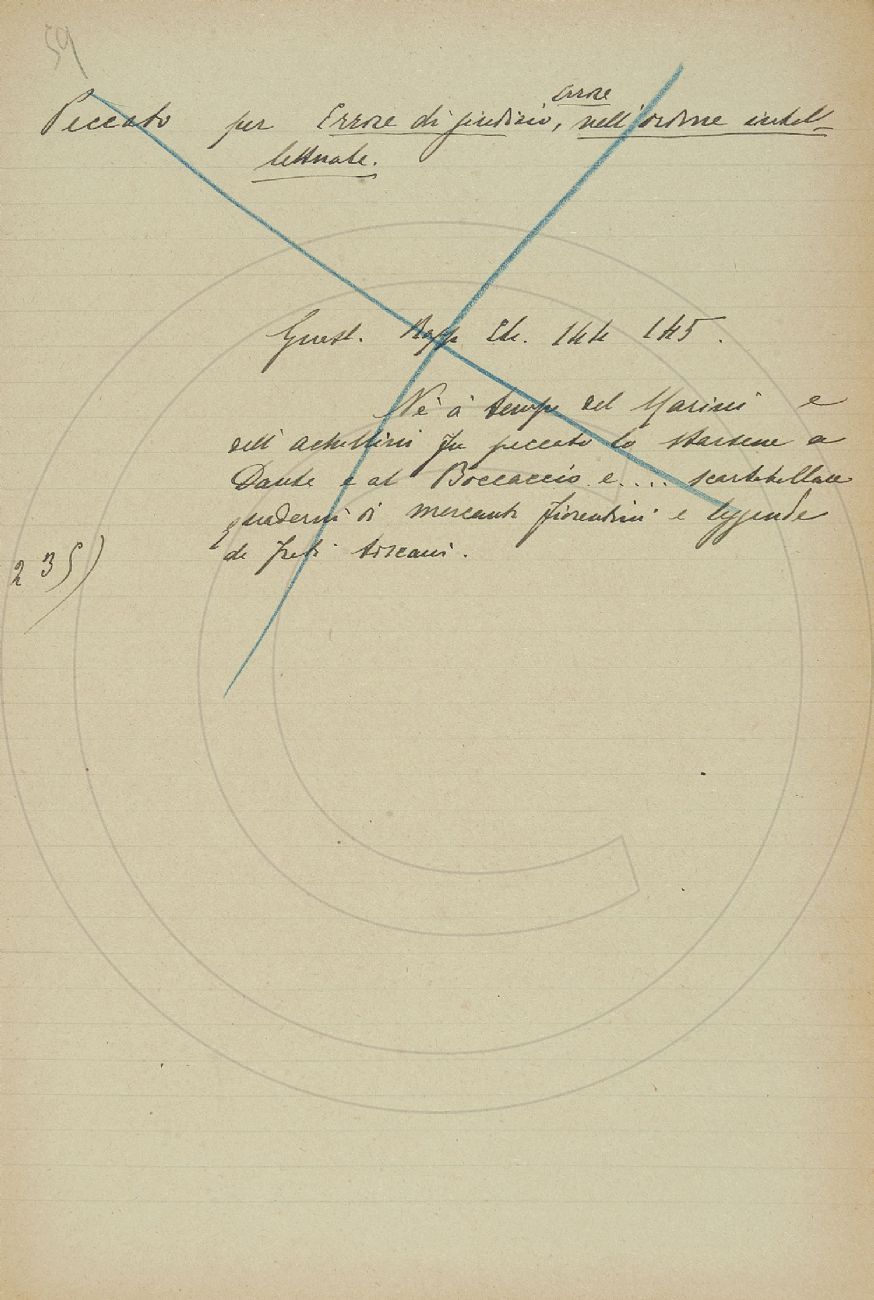 59
Peccato per Errore di giudizio, errore nell'ordine intel-
lettuale.
Giust. Rapp. Etc. 144 145.
Nè a' tempi del Marini e
dell'achillini fu peccato lo starsene a
Dante e al Boccaccio e.... scartabellare
quaderni di mercanti fiorentini e leggende
di frati toscani.
235)